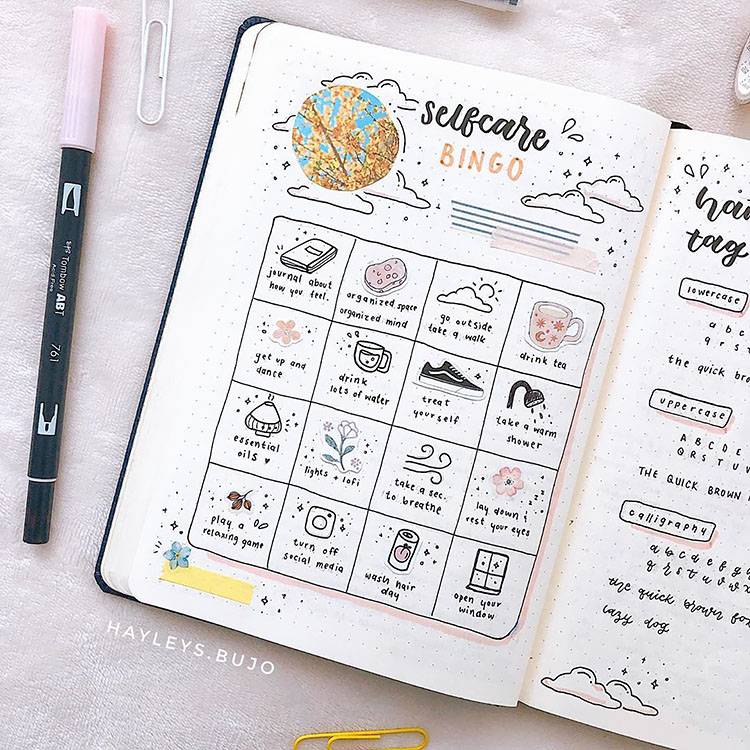 selfcare
BINGO
journal about
how you feel.
organized space
organized mind
go outside
take a walk
drink tea
get up and
dance
drink
lots of water
treat
yourself
take a warm
shower
essential
oils ♥
lights + lofi
take a sec.
to breathe
lay down &
rest your eyes
play a
relaxing game
turn off
social media
wash hair
day
open your
window
tag
lowercase
a b c
q r s t
the quick brown
uppercase
A B C D E
Q R S T U
THE QUICK BROWN
calligraphy
a b c d e f g
q r s t u v w x
the quick brown fox
lazy dog
Tombow ABT
761
HAYLEYS.BUJO